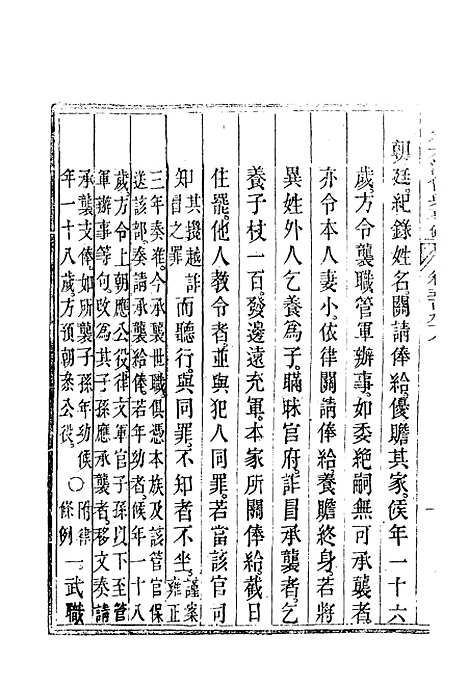 朝廷。紀錄姓名。關請俸給。優贍其家。俟年一十六
歲。方令襲職管軍辦事。如委絕嗣無可承襲者。
亦令本人妻小。依律關請俸給養贍終身。若將
異姓外人乞養為子。瞞昧官府。詐冒承襲者。乞
養子杖一百。發邊遠充軍。本家所關俸給。截日
住罷。他人教令者。並與犯人同罪。若當該官司
知其援越詐冒之罪而聽行。與同罪。不知者不坐。謹案雍正
三年奏准。今承襲世職。俱憑本族及該管官保
送該部。奏請承襲給俸。若年幼者。候年一十八
歲。方令上朝應公役。律文軍官子孫以下至管
軍辦事等句。改其子孫應承襲者。移文奏請
承襲支俸。如所襲子孫年幼候
年一十八歲。方預朝叅公役。○附律條例一武職